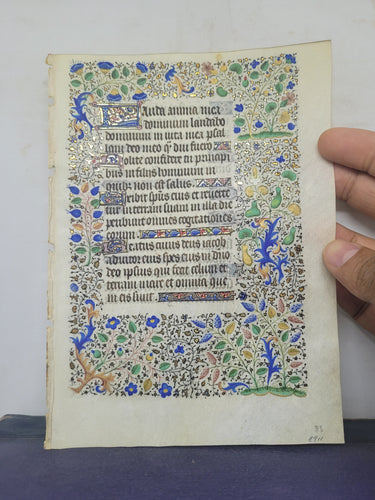 Lauda anima mea
dominum laudabo
dominum in vita mea psal
lam deo meo qᵈ diu fuero
Nolite confidere in principi
bus in filiis hominum in
quibꝫ non est salus
Exibit sp̄us eius et revertet
in terram suam in illa die
peribunt omnes cogitationes
eorum
Beatus cuius deus iacob
adiutor eius spes eius in dn̄o
deo ipsius qui fecit celum et
terram mare et omnia que
in eis sunt
33